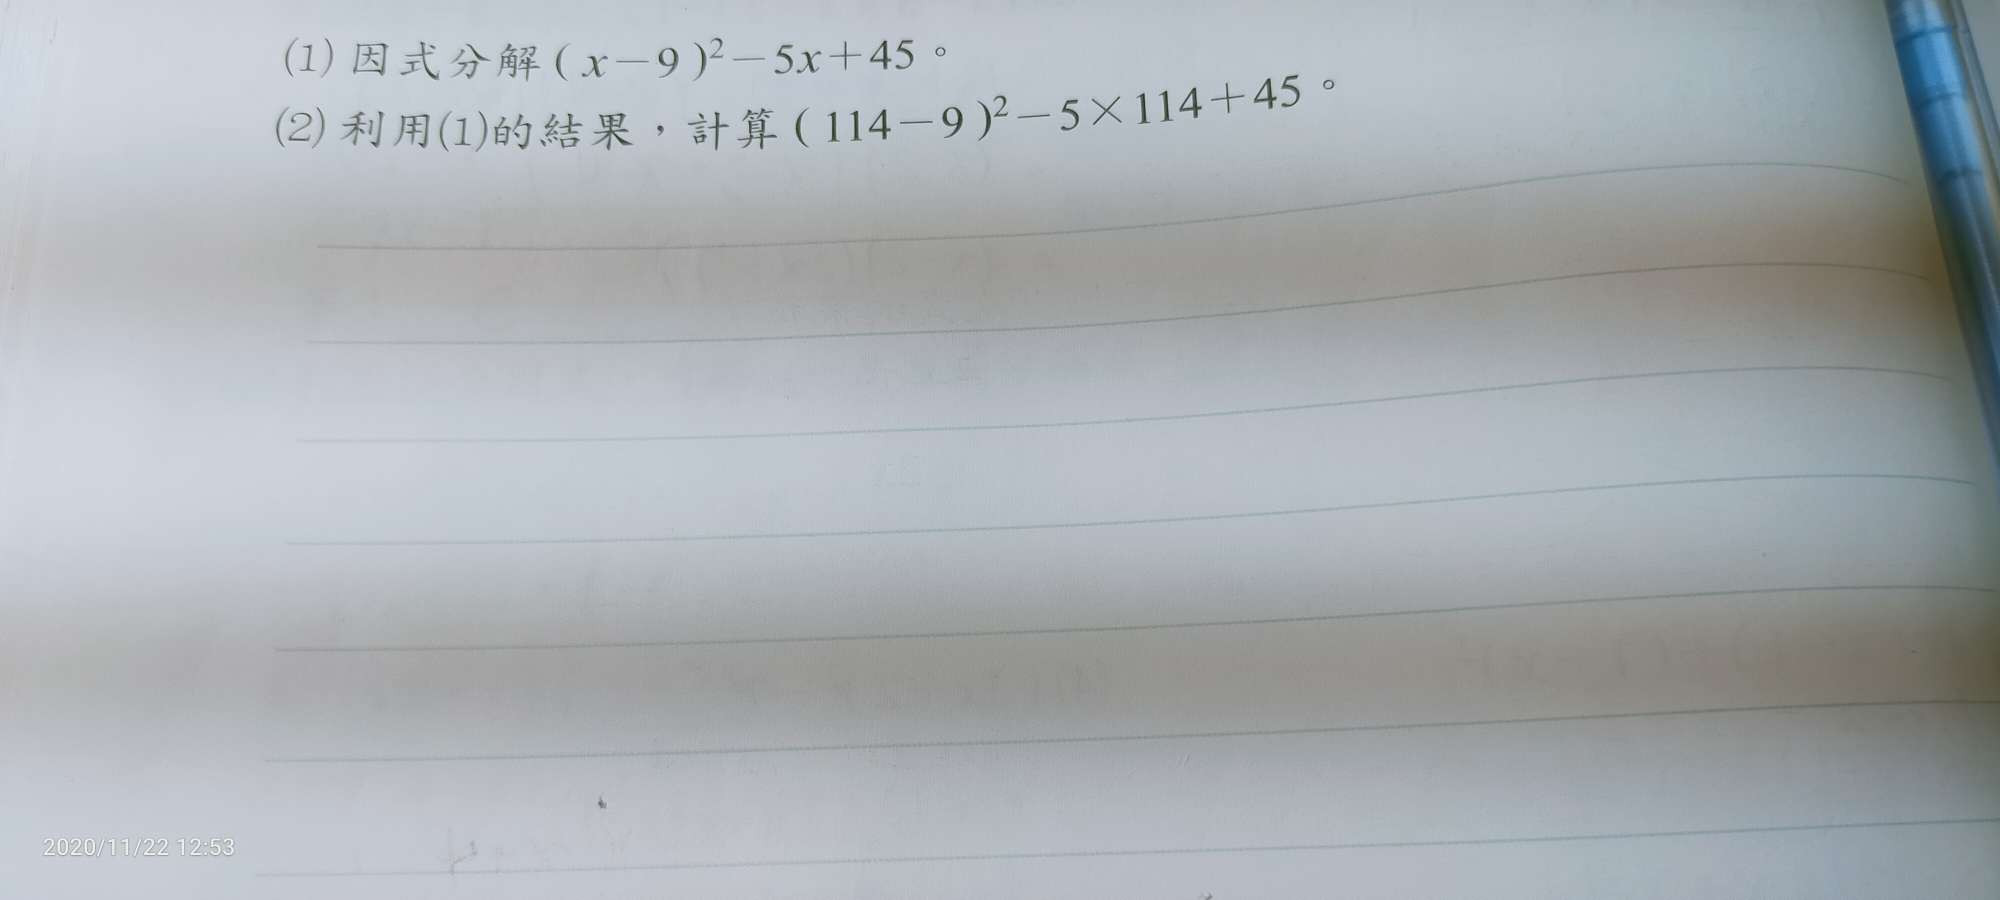 (1) 因式分解 ( x－9 )²－5x＋45。
(2) 利用(1)的結果，計算 ( 114－9 )²－5×114＋45。
2020/11/22 12:53